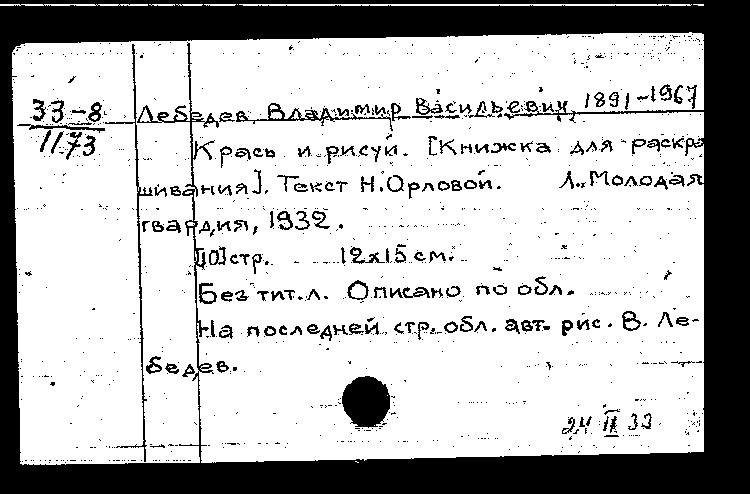 33-8
1173
Лебедев, Владимир Васильевич, 1891-1967
Крась и рисуй. [Книжка для раскра
шивания]. Текст Н.Орловой. Л., Молодая
гвардия, 1932.
[10] стр. 12х15 см.
Без тит.л. Описано по обл.
На последней стр. обл. авт. рис. В. Ле-
бедев.
24 II 33